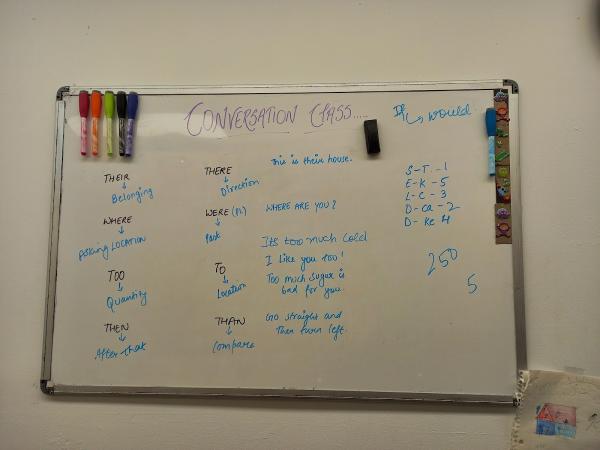 CONVERSATION CLASS....
If → would
This is their house.
THEIR
↓
Belonging
THERE
↓
Direction
S-T.-1
E-K-5
L-C-3
D-Ca-2
D-Ke 4
WHERE
↓
Asking LOCATION
WERE (Pl.)
↓
Past
WHERE ARE YOU?
Its too much cold
TOO
↓
Quantity
TO
↓
Location
I like you too!
Too much sugar is
bad for you.
250
5
THEN
↓
After that
THAN
↓
Compare
Go straight and
then turn left.